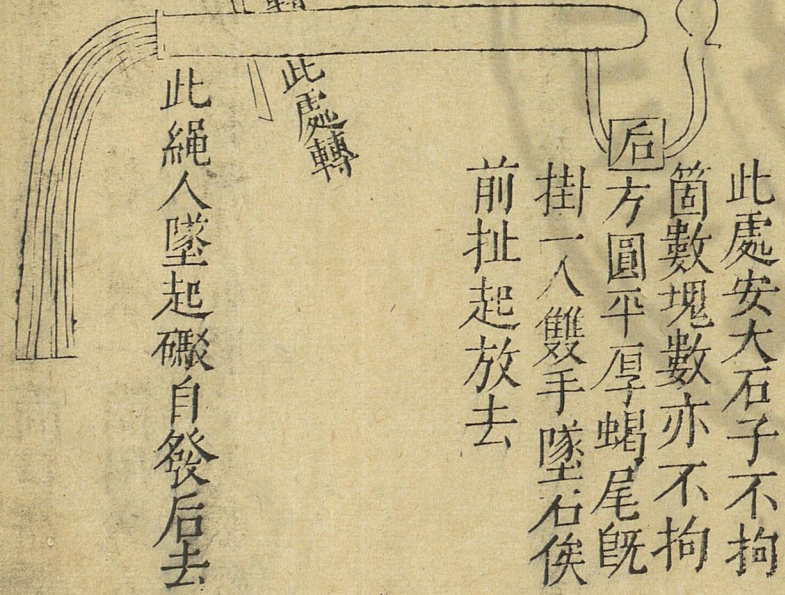 此處安大石子不拘
箇數塊數亦不拘
后方圓平厚蝎尾既
掛一人雙手墜石俟
前扯起放去
此處轉
轉
此繩人墜起礟自發后去